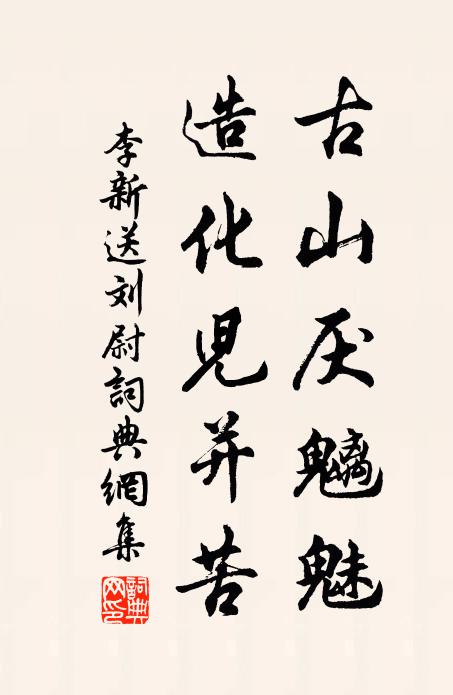 古山厌魑魅
造化児并苦
李新送刘尉詞典網集
詞典
网